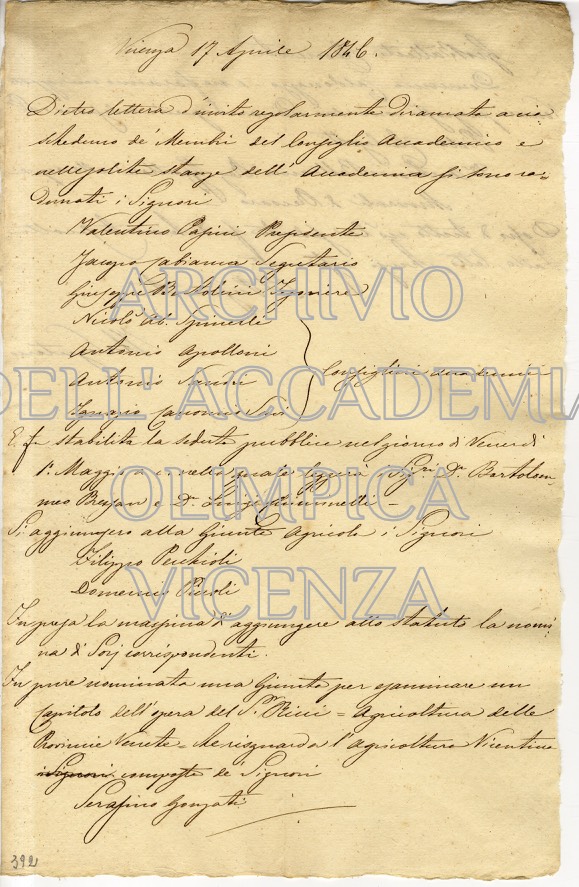 Vicenza 17 Aprile 1846.
Dietro lettera d'invito regolarmente diramata a cia-
scheduno de' Membri del Consiglio Accademico e
nelle solite stanze dell' Accademia si sono ra-
dunati i Signori
Valentino Pasini Presidente
Jacopo Cabianca Segretario
Giuseppe Bertolini
Nicolò Ab.
Antonio Apolloni
Antonio
Ignazio Canonico
Consiglieri accademici
E fu stabilita la seduta pubblica nel giorno di Venerdì
1° Maggio Sig.ri Dr. Bartolom-
meo Bressan e Dr.
Si aggiunsero alla Giunta Agricola i Signori
Filippo
Domenico
Fu presa la massima d'aggiungere allo statuto la nomi-
na di Socj corrispondenti.
Fu pure nominata una Giunta per esaminare un
Capitolo dell'opera del Sr. Ricci = Agricoltura delle
Provincie Venete = che risguarda l'agricoltura Vicentina
i Signori composta de' Signori
Serafino Gonzati
392
ARCHIVIO
DELL' ACCADEMIA
OLIMPICA
VICENZA